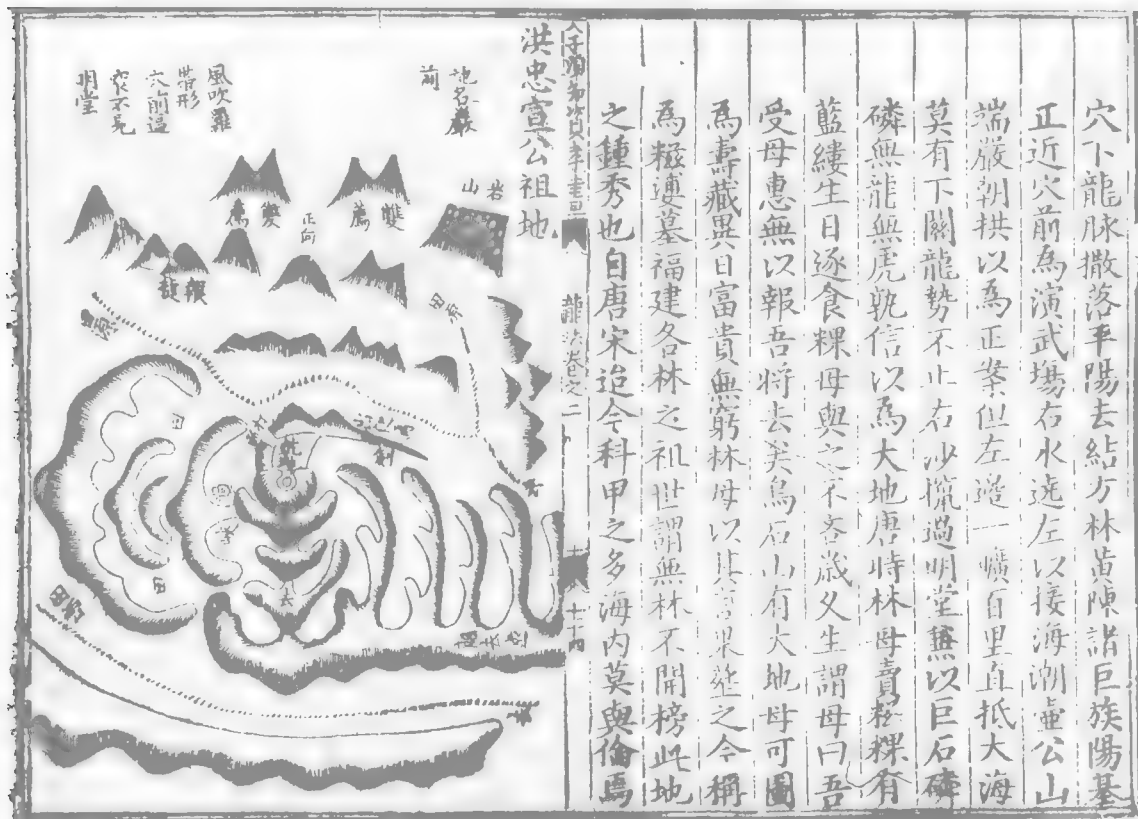 穴下龍脉撒落平陽去結方林黄陳諸巨族陽基
正近穴前為演武塲右水遶左以接海潮壷公山
端嚴朝拱以為正案但左邉一曠百里直抵大海
莫有下關龍勢不止右沙攔過明堂無以巨石磷
磷無龍無虎孰信以為大地唐時林母賣粿有
藍縷生日逐食粿母與之不吝歳久生謂母曰吾
受母惠無以報吾將去矣烏石山有大地母可圖
為壽藏異日富貴無窮林母以其言果塟之今稱
為糍粿墓福建各林之祖世謂無林不開榜此地
之鍾秀也自唐宋迨今科甲之多海内莫與倫焉
人子須知資孝書
龍法卷之二
十四
洪忠宣公祖地
地名嚴
前
風吹羅
帶形
穴前過
穴不見
明堂
岩山
雙薦
正向
雙薦
田
田